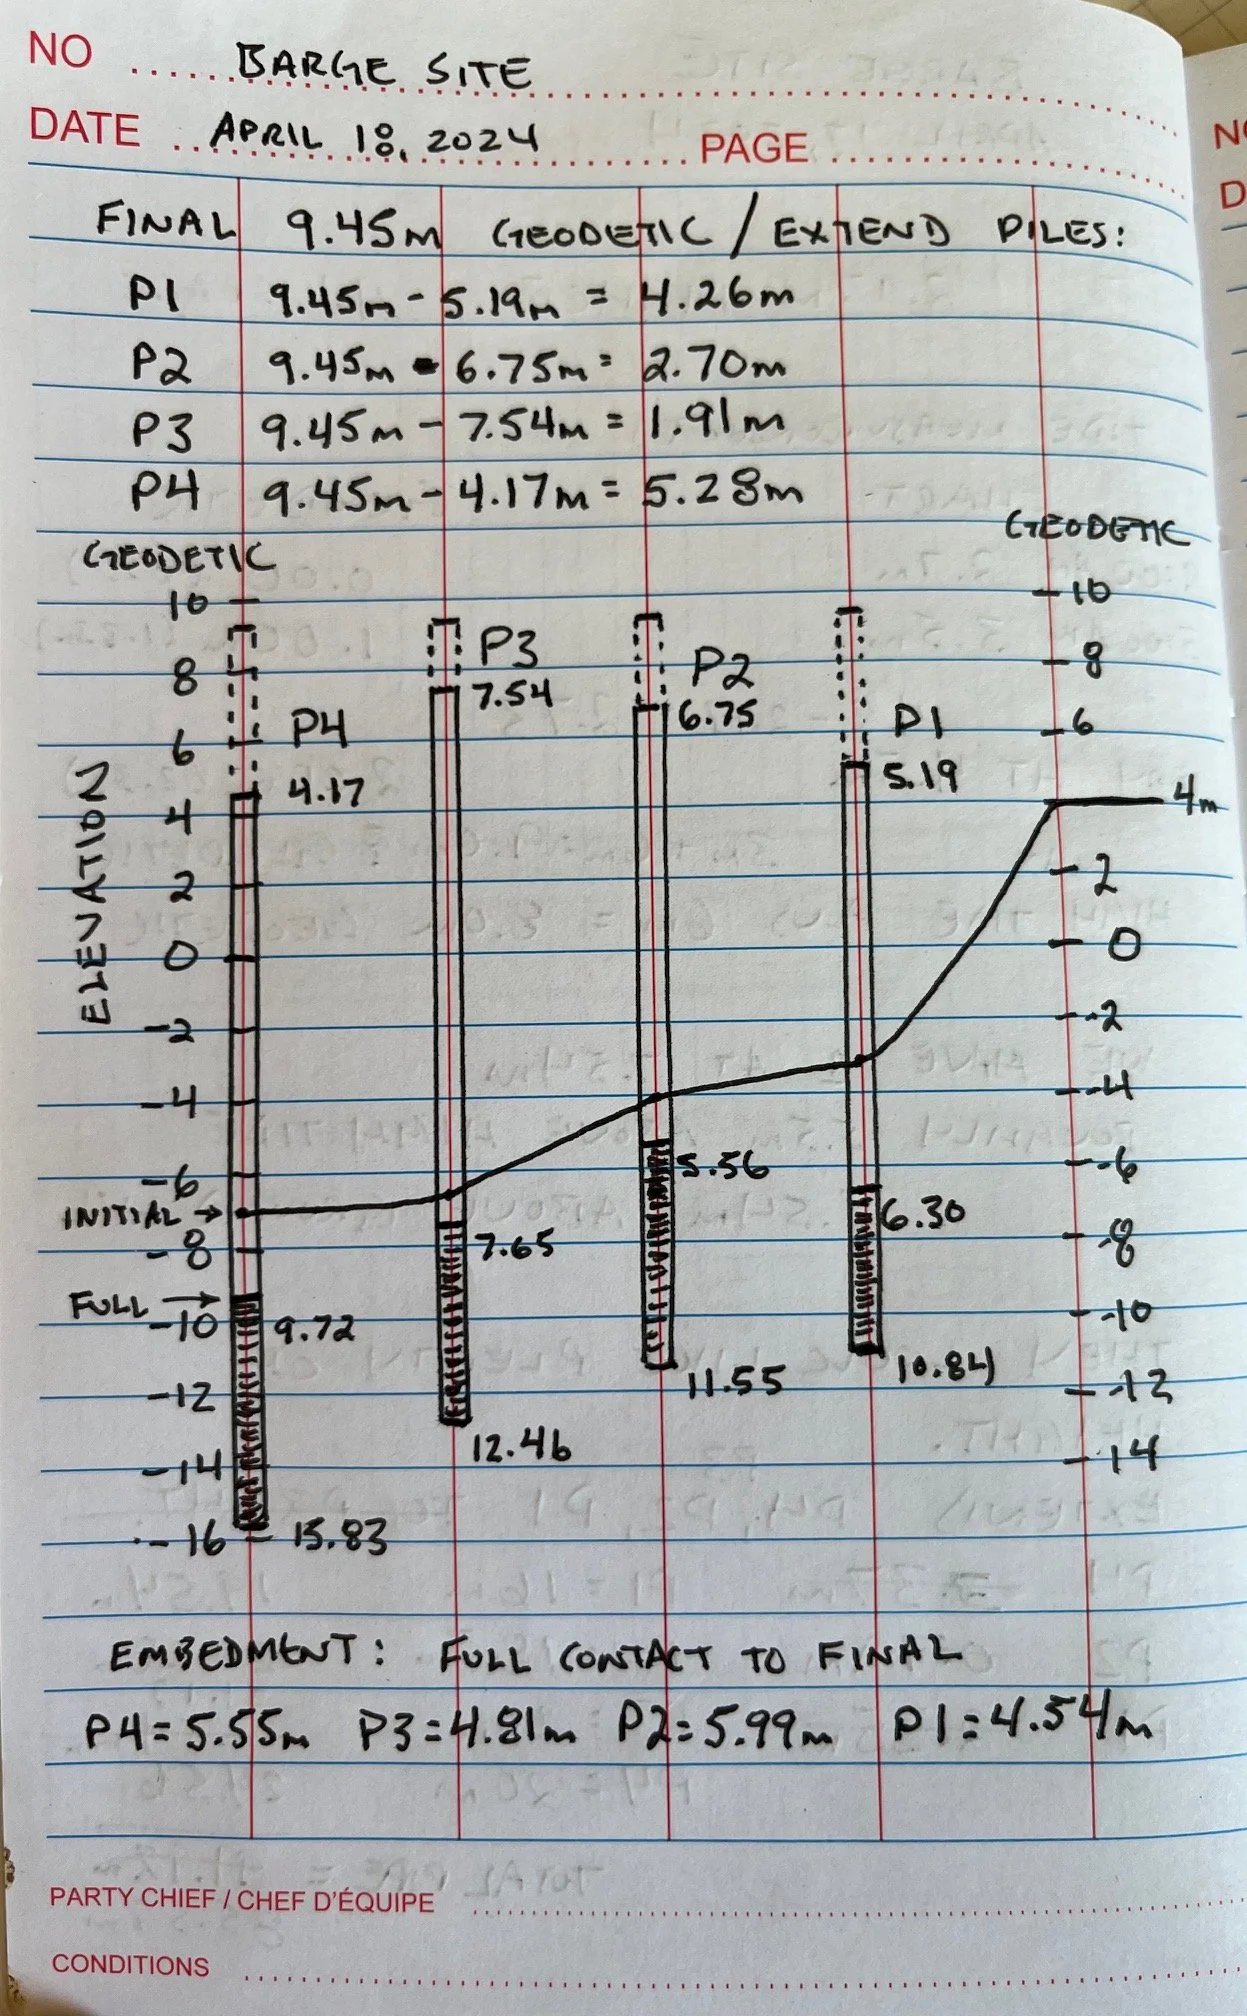 NO BARGE SITE
DATE APRIL 18, 2024 PAGE
FINAL 9.45m GEODETIC / EXTEND PILES:
P1 9.45m - 5.19m = 4.26m
P2 9.45m - 6.75m = 2.70m
P3 9.45m - 7.54m = 1.91m
P4 9.45m - 4.17m = 5.28m
GEODETIC
GEODETIC
ELEVATION
10
8
6
4
2
0
-2
-4
-6
INITIAL →
-8
FULL →
-10
-12
-14
-16
P4
4.17
9.72
15.83
P3
7.54
7.65
12.46
P2
6.75
5.56
11.55
P1
5.19
6.30
10.84
10
8
6
4m
2
0
-2
-4
-6
-8
-10
-12
14
EMBEDMENT: FULL CONTACT TO FINAL
P4=5.55m P3=4.81m P2=5.99m P1=4.54m
PARTY CHIEF / CHEF D'ÉQUIPE
CONDITIONS